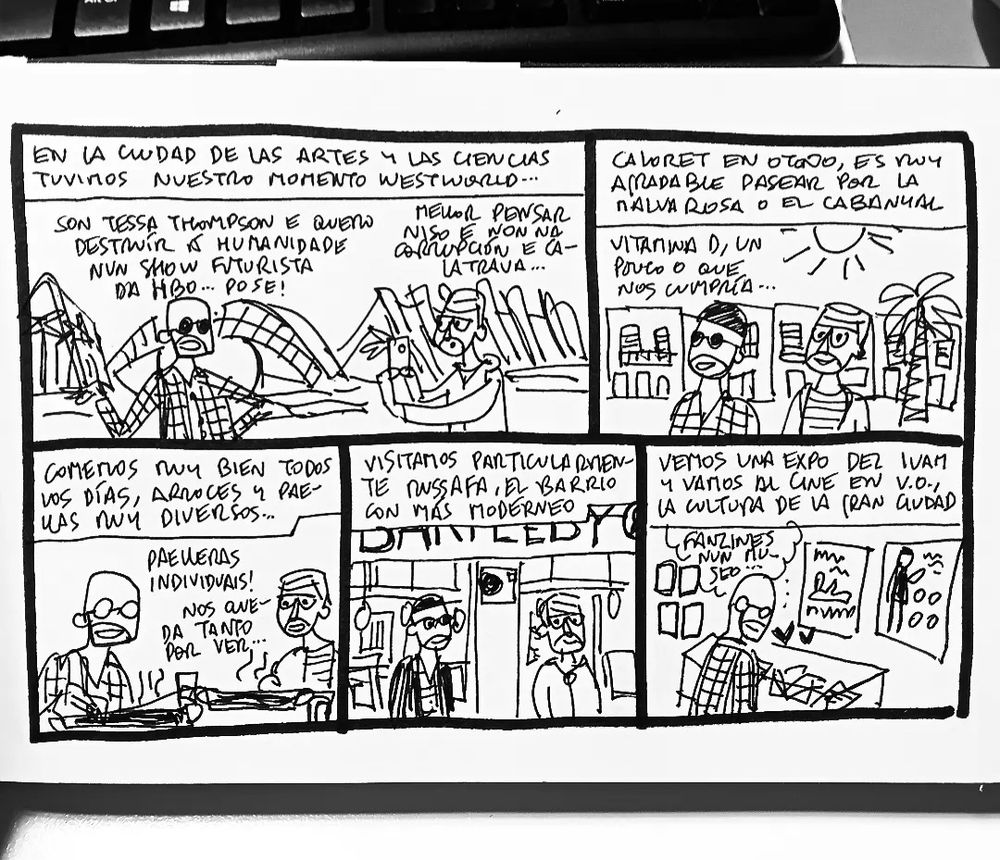 EN LA CIUDAD DE LAS ARTES Y LAS CIENCIAS
TUVIMOS NUESTRO MOMENTO WESTWORLD...
SON TESSA THOMPSON E QUERO
DESTRUÍR Á HUMANIDADE
NUN SHOW FUTURISTA
DA HBO... POSE!
MELLOR PENSAR
NISO E NON NA
CORRUPCIÓN E CA-
LATRAVA...
CALORET EN OTOÑO, ES MUY
AGRADABLE PASEAR POR LA
MALVAROSA O EL CABANYAL
VITAMINA D, UN
POUCO O QUE
NOS CUMPRÍA...
COMEMOS MUY BIEN TODOS
LOS DÍAS, ARROCES Y PAE-
LLAS MUY DIVERSOS...
PAELLERAS
INDIVIDUAIS!
NOS QUE-
DA TANTO
POR VER...
VISITAMOS PARTICULARMEN-
TE RUSSAFA, EL BARRIO
CON MÁS MODERNEO
BARTLEBY
VEMOS UNA EXPO DEL IVAM
Y VAMOS AL CINE EN V.O.,
LA CULTURA DE LA GRAN CIUDAD
FANZINES
NUN MU-
SEO...